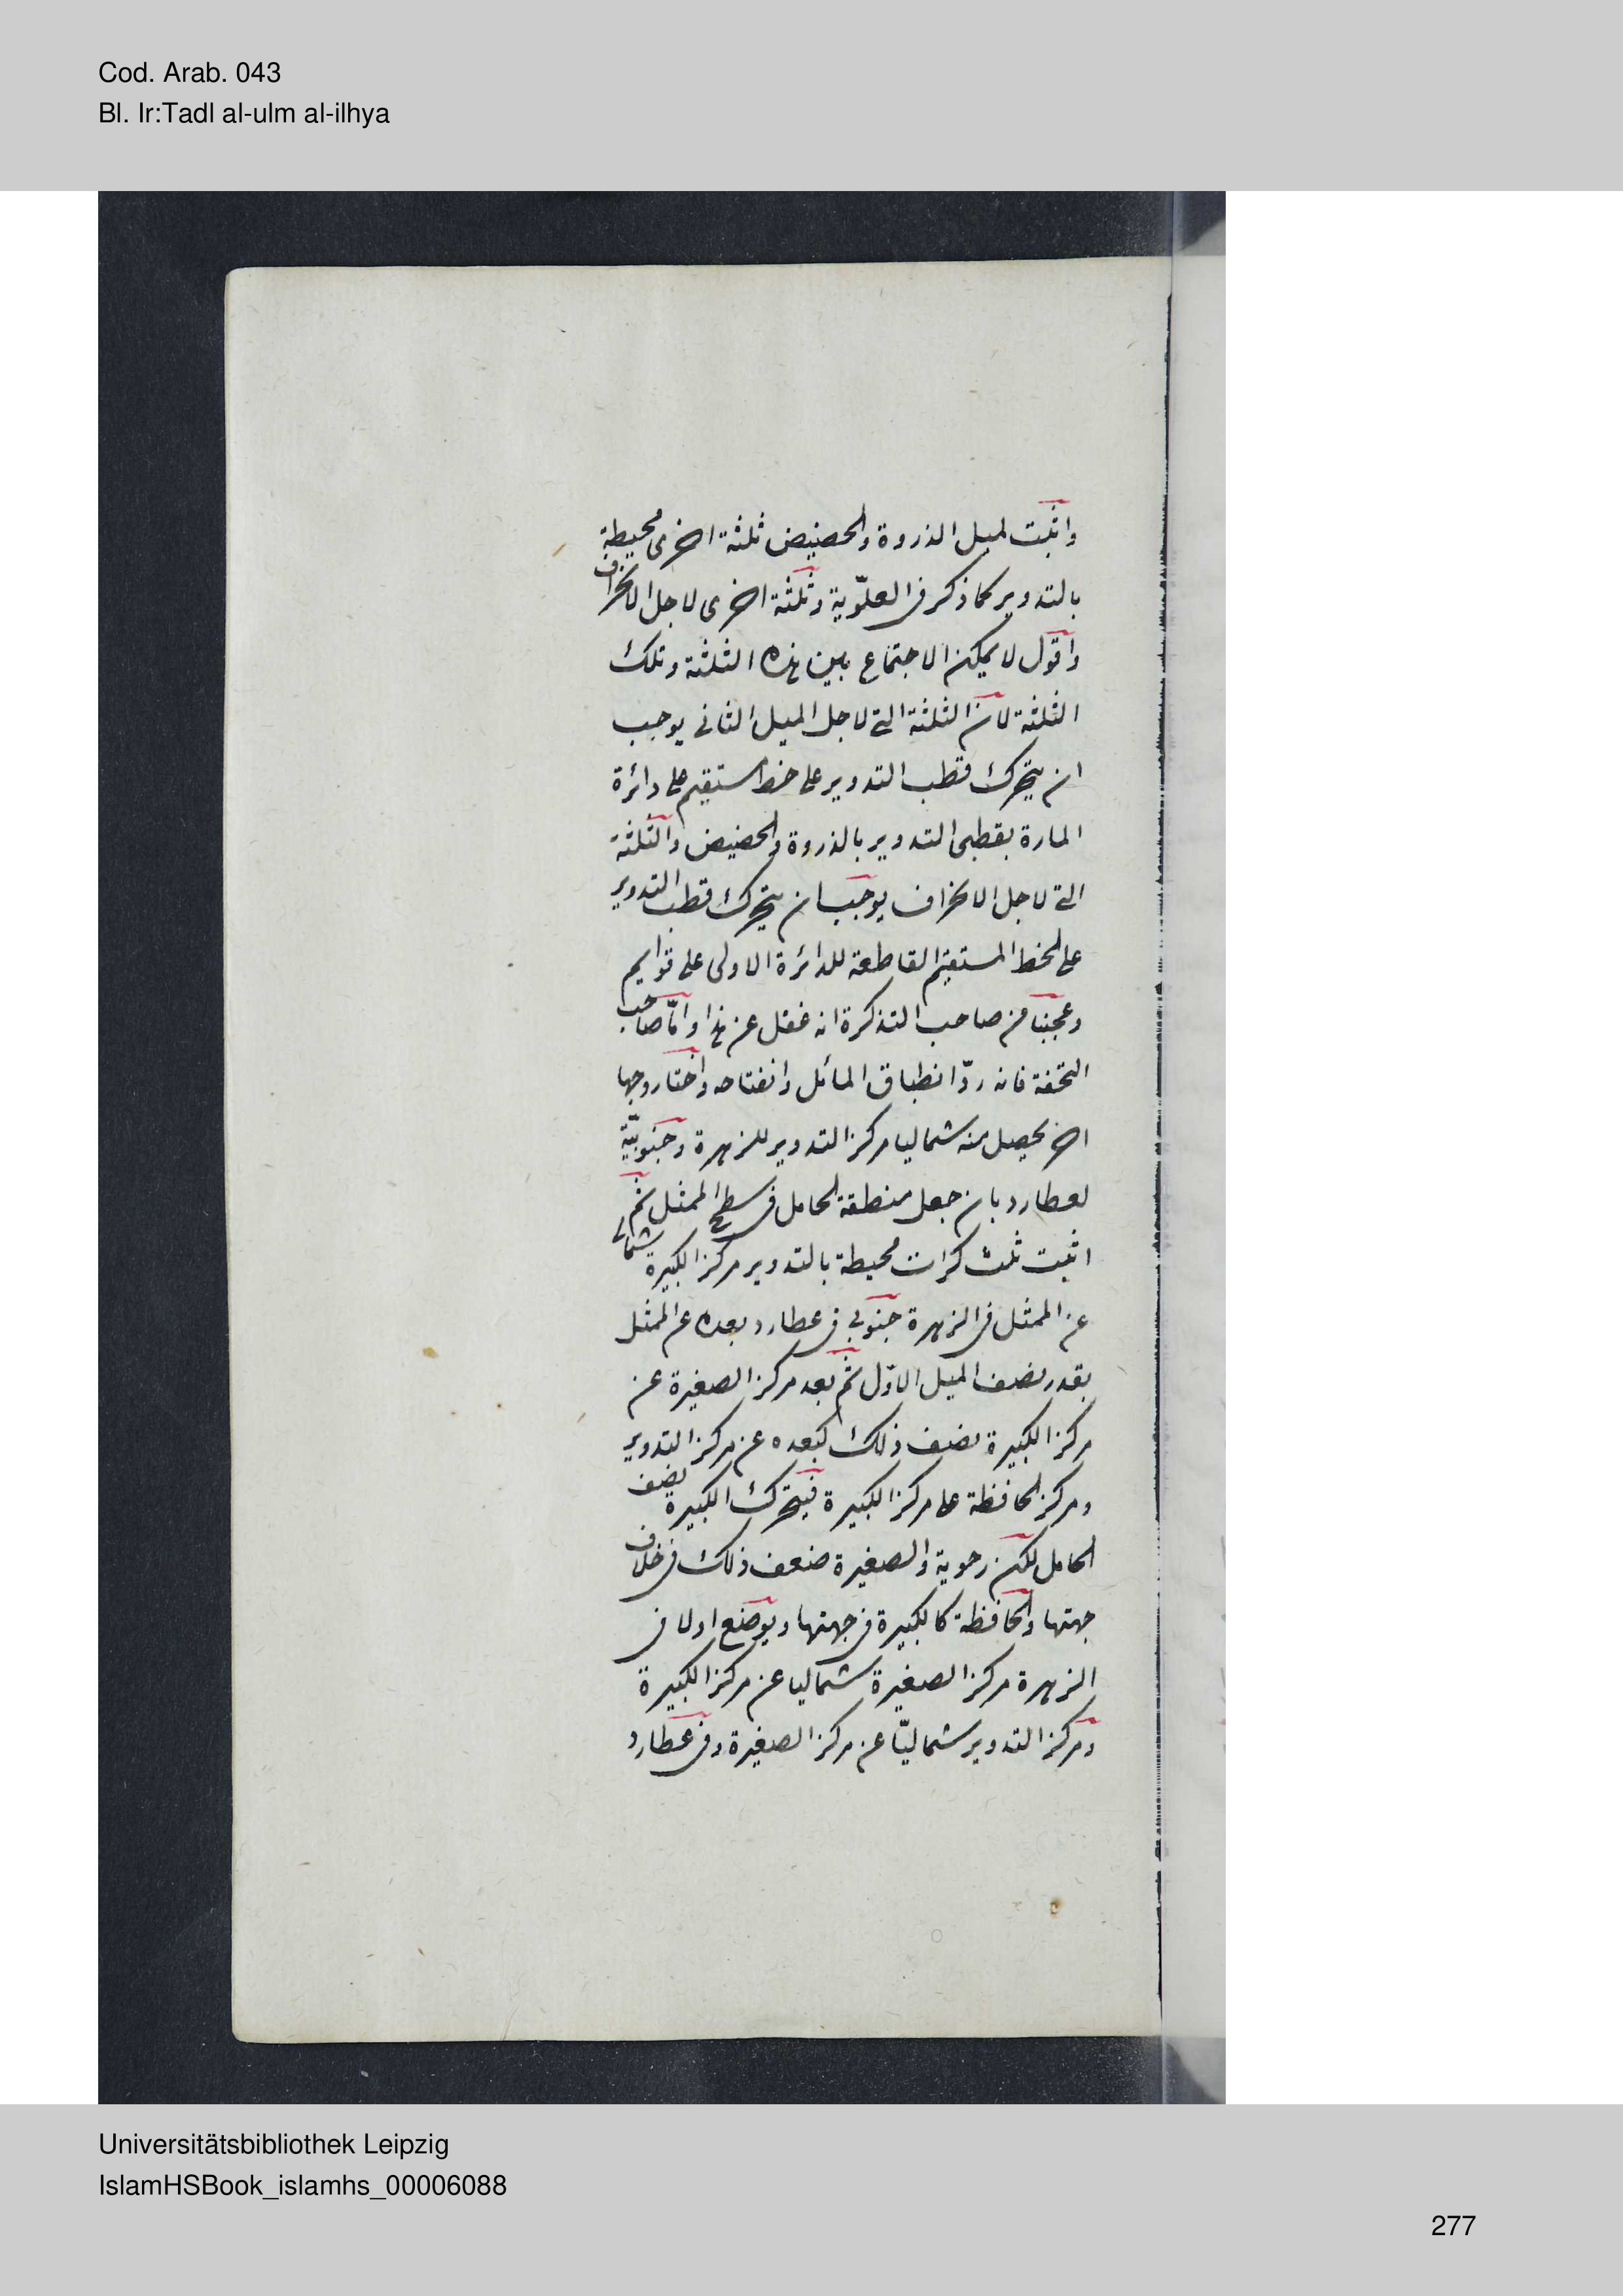 Cod. Arab. 043
Bl. Ir:Tadl al-ulm al-ilhya
واثبت لميل الذروة والحضيض ثلثة اخرى محيطة
بالتدوير كما ذكر فى العلوّية وثلثة اخرى لاجل الانحراف
واقول لا يمكن الاجتماع بين هذه الثلثة وتلك
الثلثة لان الثلثة التى لاجل الميل الثانى يوجب
ان يتحرك قطب التدوير على خط مستقيم على دائرة
المارة بقطبى التدوير بالذروة والحضيض والثلثة
التى لاجل الانحراف يوجب ان يتحرك قطب التدوير
على الخط المستقيم القاطعة للدائرة الاولى على قوايم
وعجبنا من صاحب التذكرة انه غفل عن هذا وامّا صاحب
التحفة فانه ردّ انطباق المائل وانفتاحه واختار وجها
اخر يحصل منه شماليا مركز التدوير للزهرة وجنوبيّة
لعطارد بان جعل منطقة الحامل فى سطح الممثل ثم
اثبت ثلث كرات محيطة بالتدوير مركز الكبيرة شمالى
عن الممثل فى الزهرة جنوبى فى عطارد بعده عن الممثل
بقدر نصف الميل الاوّل ثم بعد مركز الصغيرة عن
مركز الكبيرة نصف ذلك كبعده عن مركز التدوير
ومركز الحافظة على مركز الكبيرة فيتحرك الكبيرة نصف
الحامل لكن رحوية والصغيرة ضعف ذلك فى خلاف
جهتها والحافظة كالكبيرة فى جهتها ويوضع اولا فى
الزهرة مركز الصغيرة شماليا عن مركز الكبيرة
ومركز التدوير شماليّا عن مركز الصغيرة وفى عطارد
Universitätsbibliothek Leipzig
IslamHSBook_islamhs_00006088
277